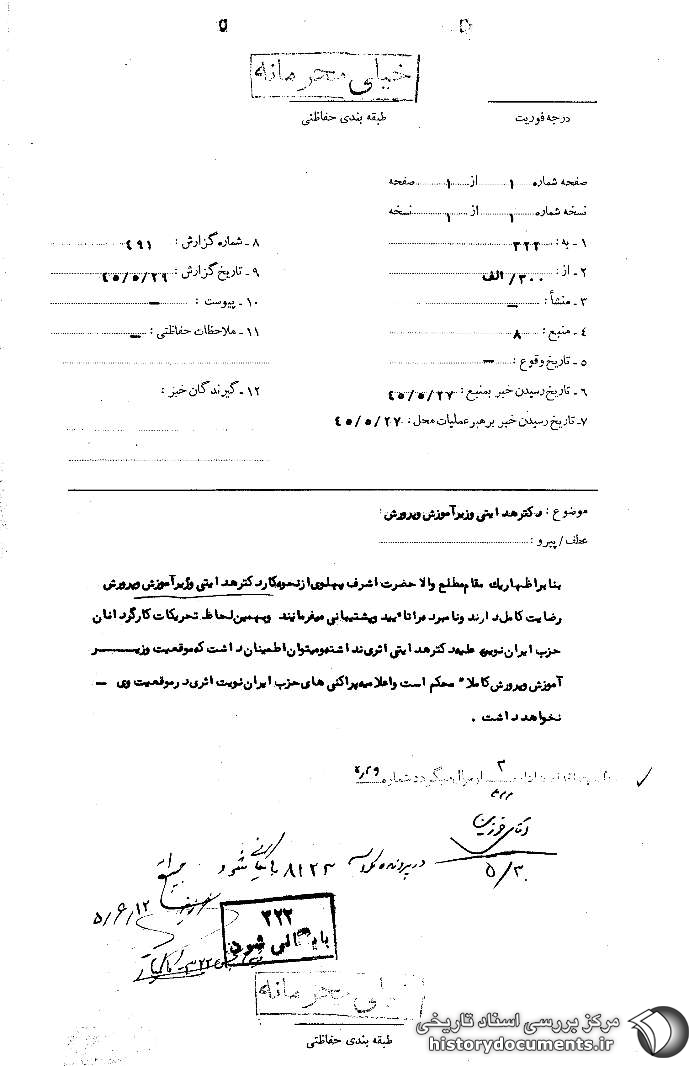 خیلی محرمانه
طبقه بندی حفاظتی
درجه فوریت
صفحه شماره ۱ از ۱ صفحه
نسخه شماره ۱ از ۱ نسخه
۱ - به : ۳۲۲
۲ - از : ۳۰۰/ الف
۳ - منشأ : -
۴ - منبع : ۸
۵ - تاریخ وقوع : -
۶ - تاریخ رسیدن خبر بمنبع : ۴۵/۵/۲۷
۷ - تاریخ رسیدن خبر برهبر عملیات محل : ۴۵/۵/۲۷
۸ - شماره گزارش : ۴۹۱
۹ - تاریخ گزارش : ۴۵/۵/۲۹
۱۰ - پیوست : -
۱۱ - ملاحظات حفاظتی : -
۱۲ - گیرندگان خبر :
موضوع : دکتر هدایتی وزیر آموزش و پرورش :
عطف / پیرو :
بنابر اظهار یک مقام مطلع والا حضرت اشرف پهلوی از نحوه کار دکتر هدایتی وزیر آموزش و پرورش
رضایت کامل دارند و نامبرده را تأیید و پشتیبانی میفرمایند و بهمین لحاظ تحریکات کارگردانان
حزب ایران نوین علیه دکتر هدایتی اثری نداشته و میتوان اطمینان داشت که موقعیت وزیر
آموزش و پرورش کاملا" محکم است و اعلامیه پراکنی های حزب ایران نوین اثری در موقعیت وی -
نخواهد داشت .
آقای
۵/۳۰
در پرونده ۸۱۲۳ بایگانی شود
۵/۶/۱۲
۳۲۲
بایگانی شود
خیلی محرمانه
طبقه بندی حفاظتی
مرکز بررسی اسناد تاریخی
historydocuments.ir